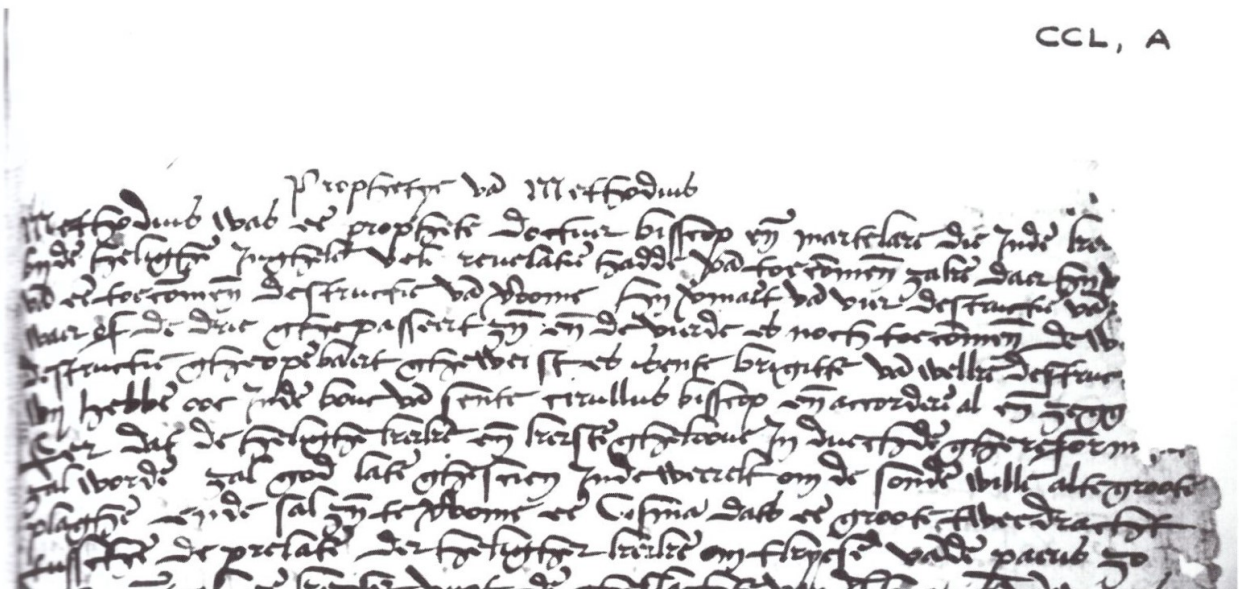 CCL, A
Prophetye vā Methodius
Methodius was ee prophete doctuer bisscop eñ martelare die Inde
heligħe velē reuelatie hadde vā toecomeñ zakē daer
vā ee toecomeñ destructie vā Roome vā vier destructiē vā
waer of de drie ghepasseert zyn eñ de vierde es noch toecomeñ de
destructie gheopēbaert gheweist es sente brigitte vā welkē destruc
wy hebbē ooc Inde bouc vā sente cirullus bisscop eñ accorderē al eñ zegg
Eer dat de helighe kerke eñ kerstē gheloove In duechdē ghereform
zal wordē zal god latē ghescien Inde weerelt om de sondē wille alte groote
plaghē ende sal zyn te Roome ee Cisma dats ee groote tweedracht
tusschē de prelatē der heligher kerke om tkiesē vandē paeus zo